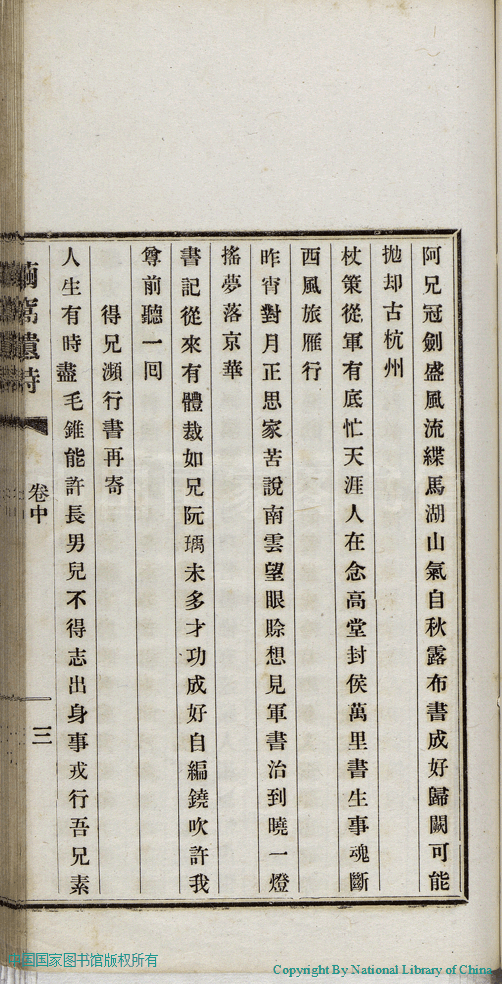 阿兄冠劍盛風流緤馬湖山氣自秋露布書成好歸闕可能
拋却古杭州
杖策從軍有底忙天涯人在念高堂封侯萬里書生事魂斷
西風旅雁行
昨宵對月正思家苦說南雲望眼賒想見軍書治到曉一燈
搖夢落京華
書記從來有體裁如兄阮瑀未多才功成好自編鐃吹許我
尊前聽一回
得兄瀕行書再寄
人生有時盡毛錐能許長男兒不得志出身事戎行吾兄素
窩遺詩
卷中
三
国国家图书馆版权所有
Copyright By National Library of China